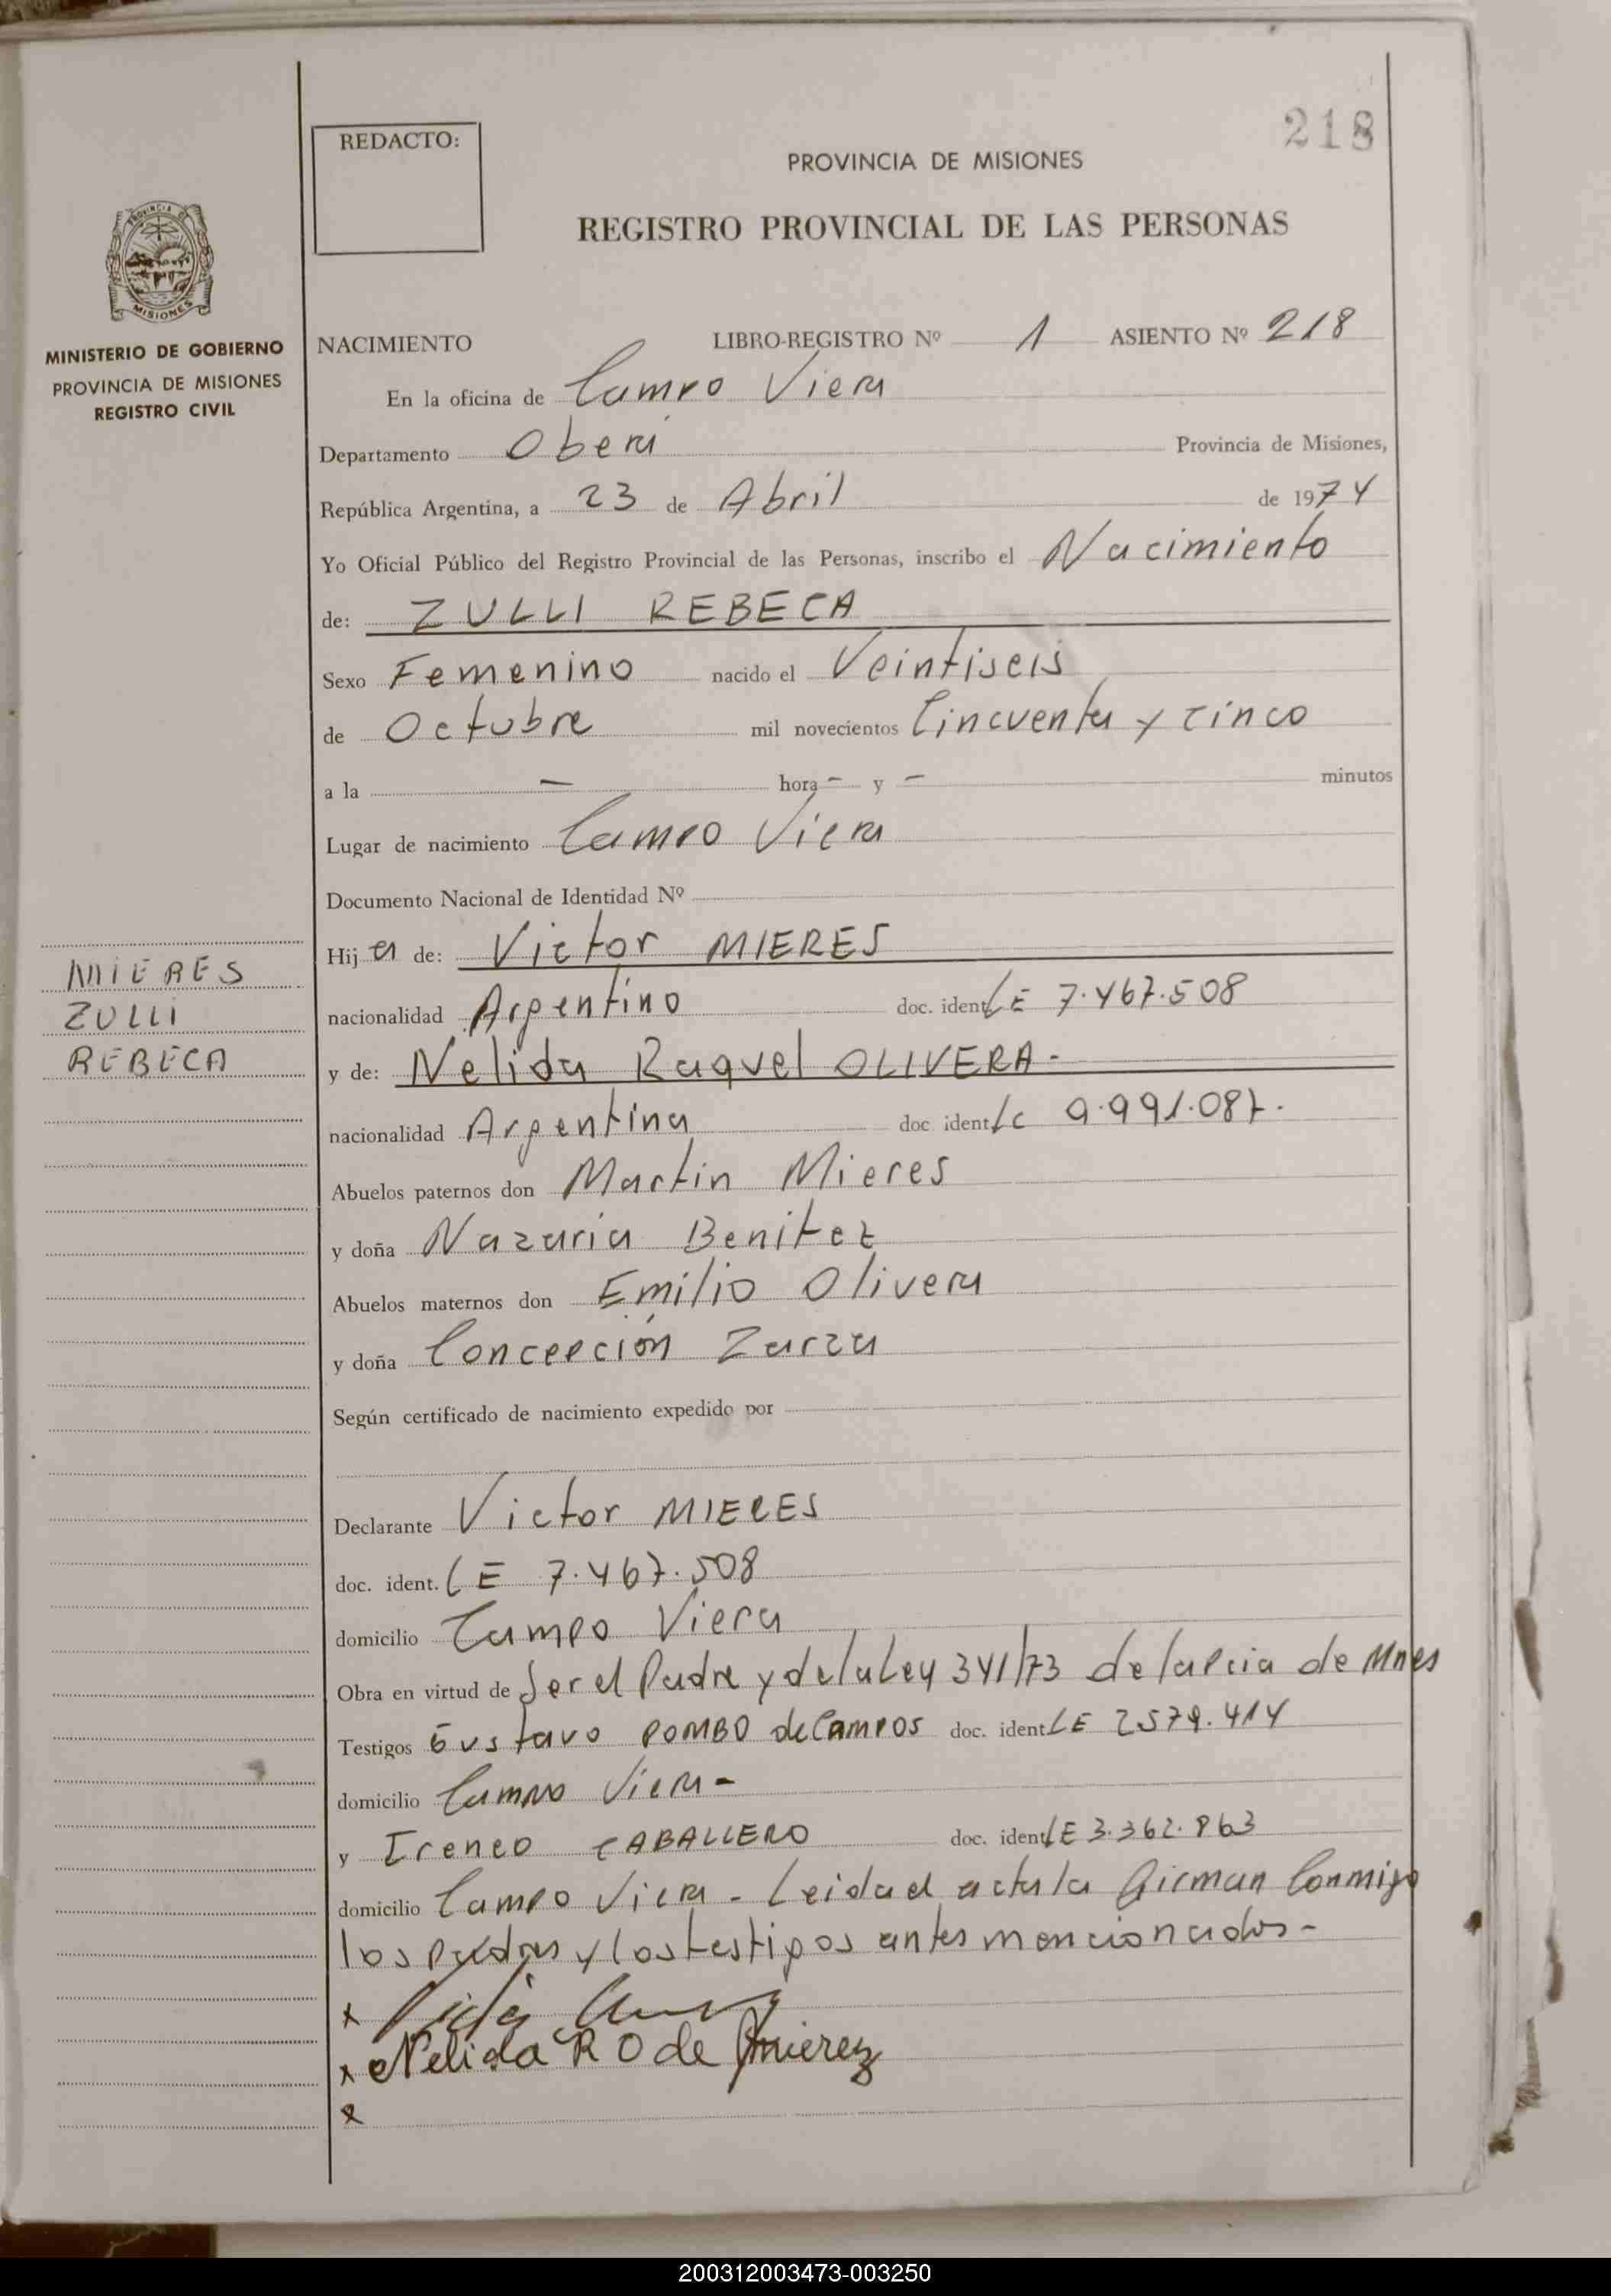 218
REDACTO:
PROVINCIA DE MISIONES
REGISTRO PROVINCIAL DE LAS PERSONAS
PROVINCIA DE
MISIONES
MINISTERIO DE GOBIERNO
PROVINCIA DE MISIONES
REGISTRO CIVIL
NACIMIENTO LIBRO-REGISTRO Nº 1 ASIENTO Nº 218
En la oficina de Campo Viera
Departamento Oberá Provincia de Misiones,
República Argentina, a 23 de Abril de 1974
Yo Oficial Público del Registro Provincial de las Personas, inscribo el Nacimiento
de: ZULLI REBECA
Sexo Femenino nacido el Veintiseis
de Octubre mil novecientos Cincuenta y cinco
a la — hora — y — minutos
Lugar de nacimiento Campo Viera
Documento Nacional de Identidad Nº
Hija de: Victor MIERES
MIERES
ZULLI
REBECA
nacionalidad Argentino doc. ident LE 7.467.508
y de: Nelida Raquel OLIVERA-
nacionalidad Argentina doc ident LC 9.991.087.
Abuelos paternos don Martin Mieres
y doña Nazaria Benitez
Abuelos maternos don Emilio Olivera
y doña Concepción Zarza
Según certificado de nacimiento expedido por
Declarante Victor MIERES
doc. ident. LE 7.467.508
domicilio Campo Viera
Obra en virtud de Ser el Padre y de la Ley 341/73 de la Pcia de Mnes
Testigos Gustavo POMBO de CAMPOS doc. ident LE 2579.414
domicilio Campo Viera-
y Ireneo CABALLERO doc. ident LE 3.362.863
domicilio Campo Viera - Leida el acta la firman Conmigo
los padres y los testigos antes mencionados-
x
x Nelida R O de Mierez
x
200312003473-003250